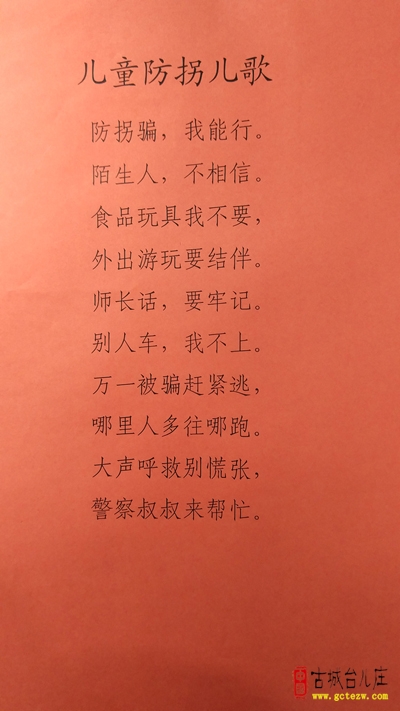 儿童防拐儿歌
防拐骗，我能行。
陌生人，不相信。
食品玩具我不要，
外出游玩要结伴。
师长话，要牢记。
别人车，我不上。
万一被骗赶紧逃，
哪里人多往哪跑。
大声呼救别慌张，
警察叔叔来帮忙。
古城台儿庄
www.gctezw.com